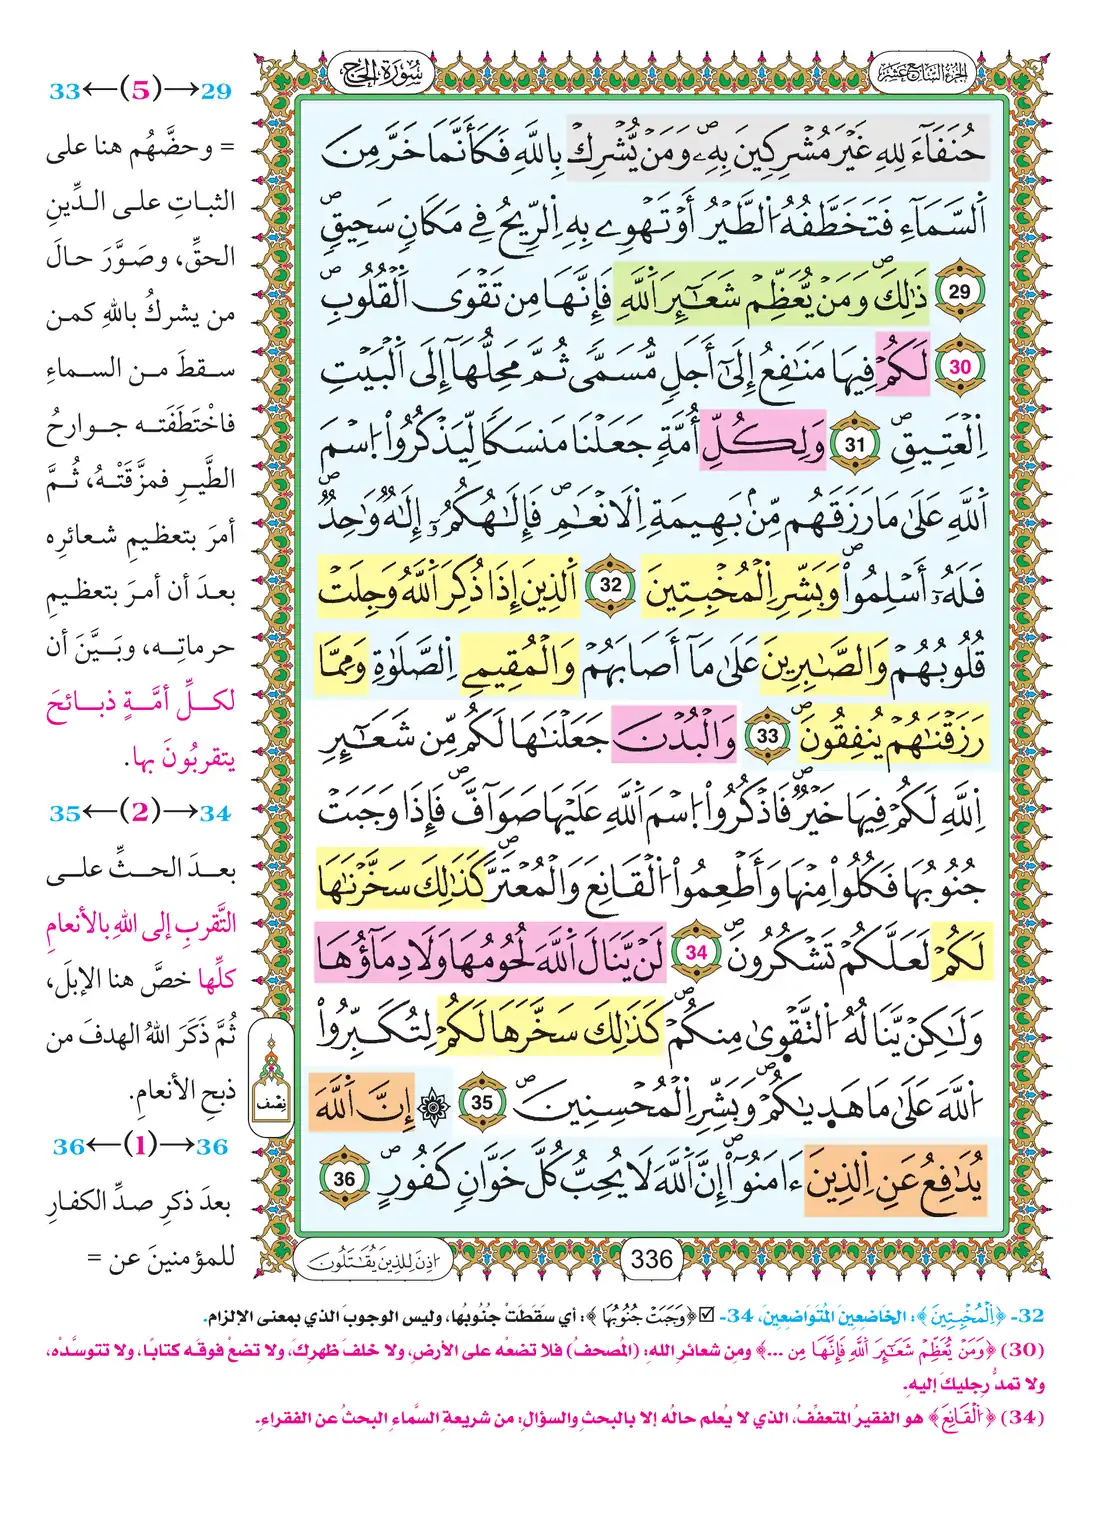 سُورَةُ الحَجّ
الجزء السابع عشر
حُنَفَآءَ لِلهِ غَيْرَ مُشْرِكِينَ بِهِۦ وَمَنْ يُّشْرِكْ بِاللَّهِ فَكَأَنَّمَا خَرَّ مِنَ
اَ۬لسَّمَآءِ فَتَخَطَّفُهُ اُ۬لطَّيْرُ أَوْ تَهْوِے بِهِ اِ۬لرِّيحُ فِے مَكَانٖ سَحِيقٖ
29 ذَٰلِكَ وَمَنْ يُّعَظِّمْ شَعَٰٓئِرَ اَ۬للَّهِ فَإِنَّهَا مِن تَقْوَى اَ۬لْقُلُوبِ
30 لَكُمْ فِيهَا مَنَٰفِعُ إِلَىٰٓ أَجَلٖ مُّسَمّٗى ثُمَّ مَحِلُّهَآ إِلَى اَ۬لْبَيْتِ
اِ۬لْعَتِيقِ 31 وَلِكُلِّ أُمَّةٖ جَعَلْنَا مَنسَكاٗ لِّيَذْكُرُواْ اُ۪سْمَ
اَ۬للَّهِ عَلَىٰ مَا رَزَقَهُم مِّنۢ بَهِيمَةِ اِ۬لَانْعَٰمِ فَإِلَٰهُكُمُۥٓ إِلَٰهٞ وَٰحِدٞ
فَلَهُۥٓ أَسْلِمُواْ وَبَشِّرِ اِ۬لْمُخْبِتِينَ 32 اَ۬لَّذِينَ إِذَا ذُكِرَ اَ۬للَّهُ وَجِلَتْ
قُلُوبُهُمْ وَالصَّٰبِرِينَ عَلَىٰ مَآ أَصَابَهُمْ وَالْمُقِيمِے اِ۬لصَّلَوٰةِ وَمِمَّا
رَزَقْنَٰهُمْ يُنفِقُونَ 33 وَالْبُدْنَ جَعَلْنَٰهَا لَكُم مِّن شَعَٰٓئِرِ
اِ۬للَّهِ لَكُمْ فِيهَا خَيْرٞ فَاذْكُرُواْ اُ۪سْمَ اَ۬للَّهِ عَلَيْهَا صَوَآفَّ فَإِذَا وَجَبَتْ
جُنُوبُهَا فَكُلُواْ مِنْهَا وَأَطْعِمُواْ اُ۬لْقَانِعَ وَالْمُعْتَرَّ كَذَٰلِكَ سَخَّرْنَٰهَا
لَكُمْ لَعَلَّكُمْ تَشْكُرُونَ 34 لَنْ يَّنَالَ اَ۬للَّهَ لُحُومُهَا وَلَا دِمَآؤُهَا
وَلَٰكِنْ يَّنَالُهُ اُ۬لتَّقْوَىٰ مِنكُمْ كَذَٰلِكَ سَخَّرَهَا لَكُمْ لِتُكَبِّرُواْ
اُ۬للَّهَ عَلَىٰ مَا هَدٜىٰكُمْ وَبَشِّرِ اِ۬لْمُحْسِنِينَ 35 ۞ إِنَّ اَ۬للَّهَ
يُدَٰفِعُ عَنِ اِ۬لذِينَ ءَامَنُوٓاْ إِنَّ اَ۬للَّهَ لَا يُحِبُّ كُلَّ خَوَّانٖ كَفُورٖ 36
نِصْف
336
اذِنَ لِلذِينَ يُقَٰتَلُونَ
33←(5)→29
= وحضَّهُم هنا على
الثباتِ على الدِّينِ
الحقِّ، وصَوَّرَ حالَ
من يشركُ باللهِ كمن
سقطَ من السماءِ
فاخْتَطَفَته جوارحُ
الطَّيرِ فمزَّقَتْهُ، ثُمَّ
أمرَ بتعظيمِ شعائرِه
بعدَ أن أمرَ بتعظيمِ
حرماتِه، وبَيَّنَ أن
لكلِّ أمَّةٍ ذبائحَ
يتقربُونَ بها.
35←(2)→34
بعدَ الحثِّ على
التَّقربِ إلى اللهِ بالأنعامِ
كلِّها خصَّ هنا الإبلَ،
ثُمَّ ذَكَرَ اللهُ الهدفَ من
ذبحِ الأنعامِ.
36←(1)→36
بعدَ ذكرِ صدِّ الكفارِ
للمؤمنينَ عن =
32- ﴿اِ۬لْمُخْبِتِينَ﴾: الخَاضعِينَ المُتَوَاضِعينَ، 34- ☑ ﴿وَجَبَتْ جُنُوبُهَا﴾: أي سقَطَتْ جُنُوبُها، وليس الوجوبَ الذي بمعنى الإلزام.
(30) ﴿وَمَنْ يُّعَظِّمْ شَعَٰٓئِرَ اَ۬للَّهِ فَإِنَّهَا مِن ...﴾ ومِن شعائرِ الله: (المُصحفُ) فلا تضعْه على الأرضِ، ولا خلفَ ظهرِكَ، ولا تضعْ فوقَه كتابًا، ولا تتوسَّدْهُ،
ولا تمدُّ رجليكَ إليهِ.
(34) ﴿اَ۬لْقَانِعَ﴾ هو الفقيرُ المتعفِّفُ، الذي لا يُعلم حالُه إلا بالبحثِ والسؤالِ: من شريعةِ السَّماءِ البحثُ عن الفقراءِ.